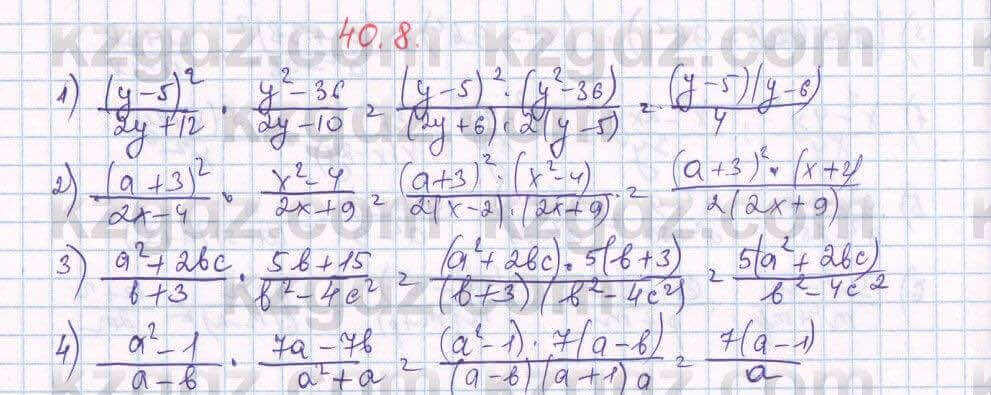 40.8.
1) (y-5)²/(2y+12) · (y²-36)/(2y-10) = ((y-5)²·(y²-36))/((2y+6)·2(y-5)) = ((y-5)(y-6))/4
2) (a+3)²/(2x-4) · (x²-4)/(2x+9) = ((a+3)²·(x²-4))/(2(x-2)·(2x+9)) = ((a+3)²·(x+2))/(2(2x+9))
3) (a²+2bc)/(b+3) · (5b+15)/(b²-4c²) = ((a²+2bc)·5(b+3))/((b+3)(b²-4c²)) = (5(a²+2bc))/(b²-4c²)
4) (a²-1)/(a-b) · (7a-7b)/(a²+a) = ((a²-1)·7(a-b))/((a-b)(a+1)a) = (7(a-1))/a
kzgdz.com